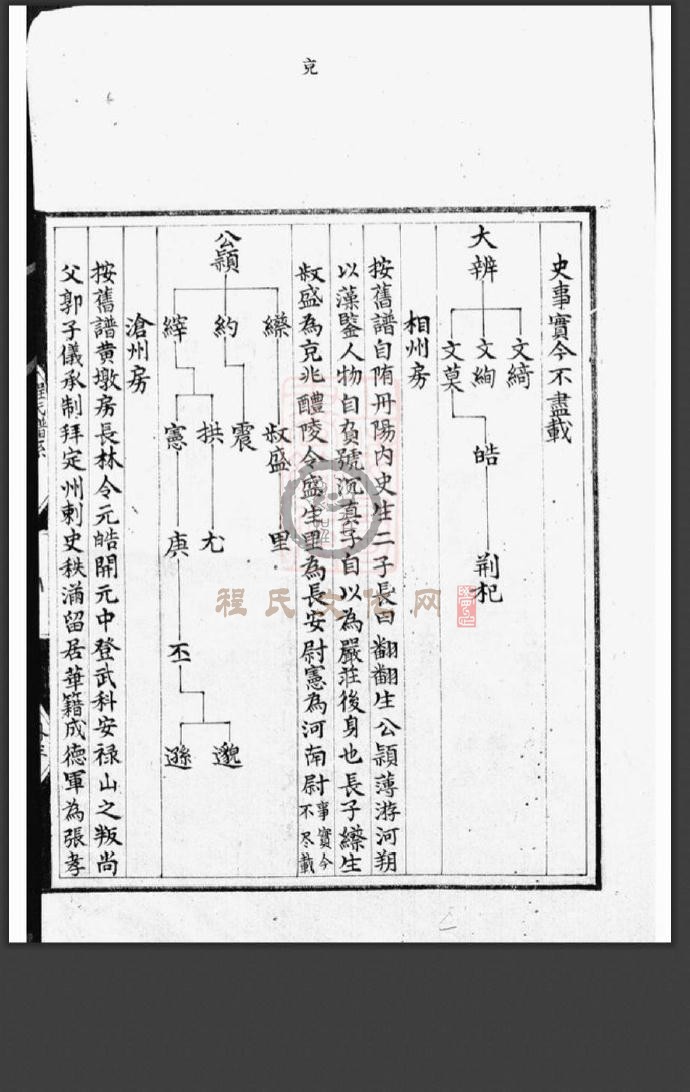 克
史事實今不盡載
大辨
文綺
文絢
文䓪
皓
荆杞
相州房
按舊譜自隋丹陽内史生二子長曰翻翻生公穎薄游河朔
以藻鑒人物自負號沉真子自以為嚴莊後身也長子繰生
叔盛為克兆醴陵令盛生里為長安尉憲為河南尉事實今不尽載
公穎
約
繹
叔盛
震
拱
憲
里
尤
庚
丕
邈
遜
滄州房
按舊譜黄墩房長林令元皓開元中登武科安禄山之叛尚
父郭子儀承制拜定州刺史秩滿留居華籍成德軍為張孝
程氏文化网